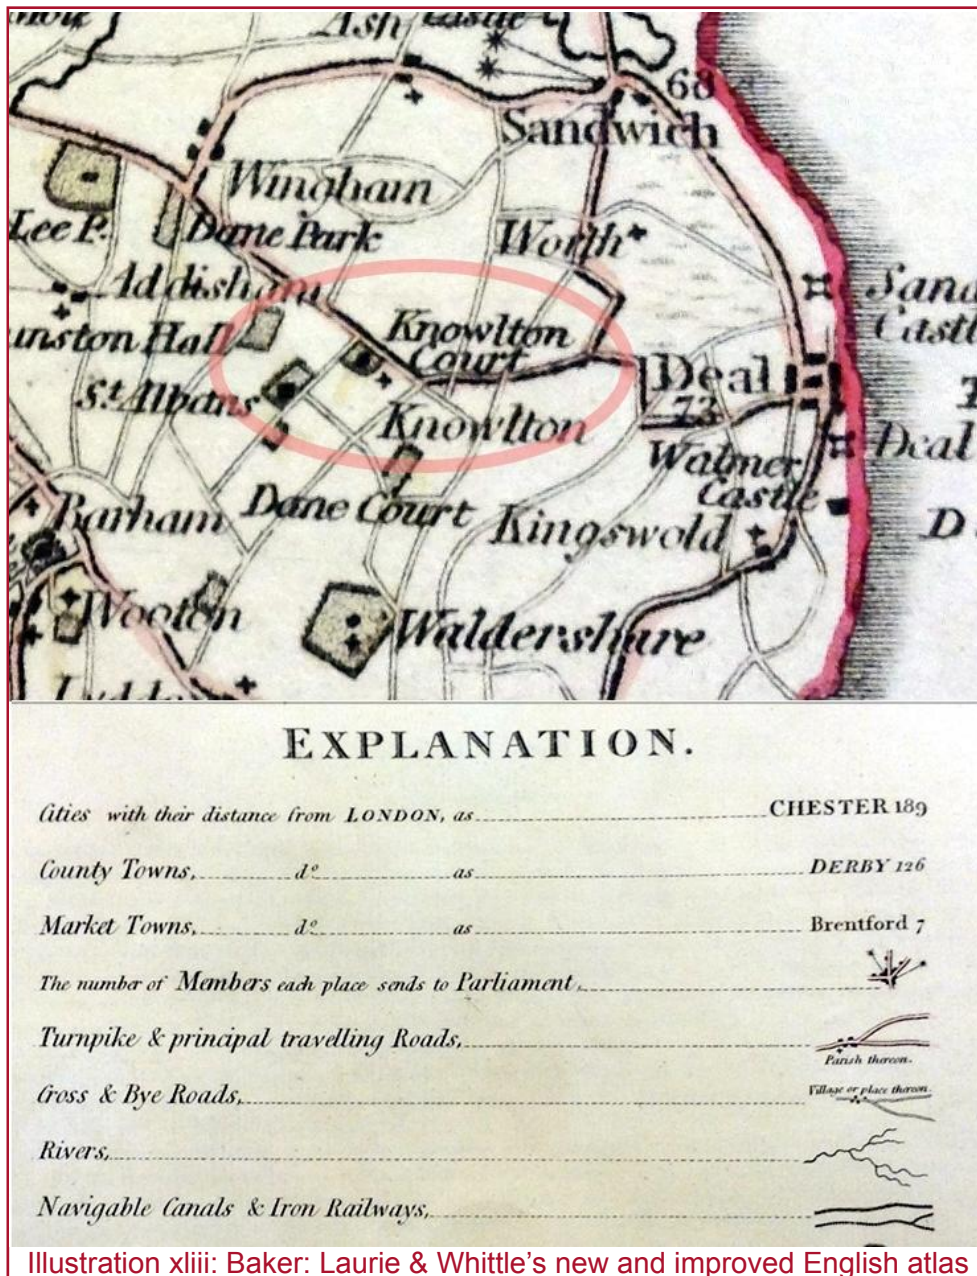 Ash
Castle
68
Sandwich
Wingham
Lee P.
Dane Park
Worth
Addisham
Knowlton
Court
Sand
Castle
unston Hall
St. Albans
Deal
73
Knowlton
Deal
Walmer
Castle
Dane Court
Kingswold
Barham
D
Wooton
Waldershare
EXPLANATION.
Cities with their distance from LONDON, as CHESTER 189
County Towns, do as DERBY 126
Market Towns, do as Brentford 7
The number of Members each place sends to Parliament,
Turnpike & principal travelling Roads,
Parish thereon.
Cross & Bye Roads,
Village or place thereon.
Rivers,
Navigable Canals & Iron Railways,
Illustration xliii: Baker: Laurie & Whittle’s new and improved English atlas